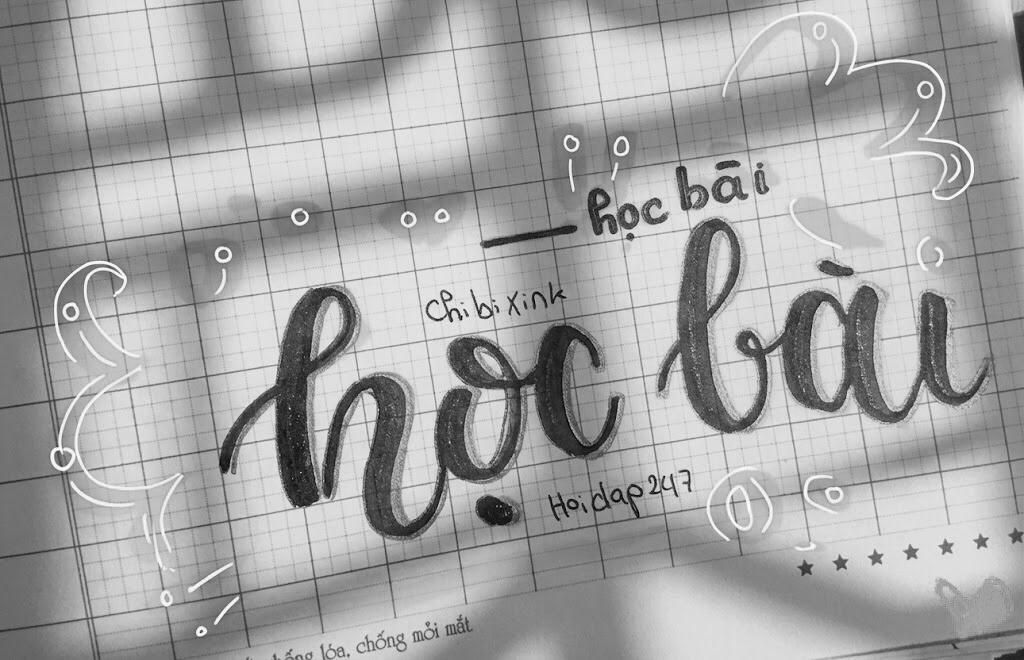 học bài
Chi bi xink
học bài
Hoidap247
lóa, chống mỏi mắt